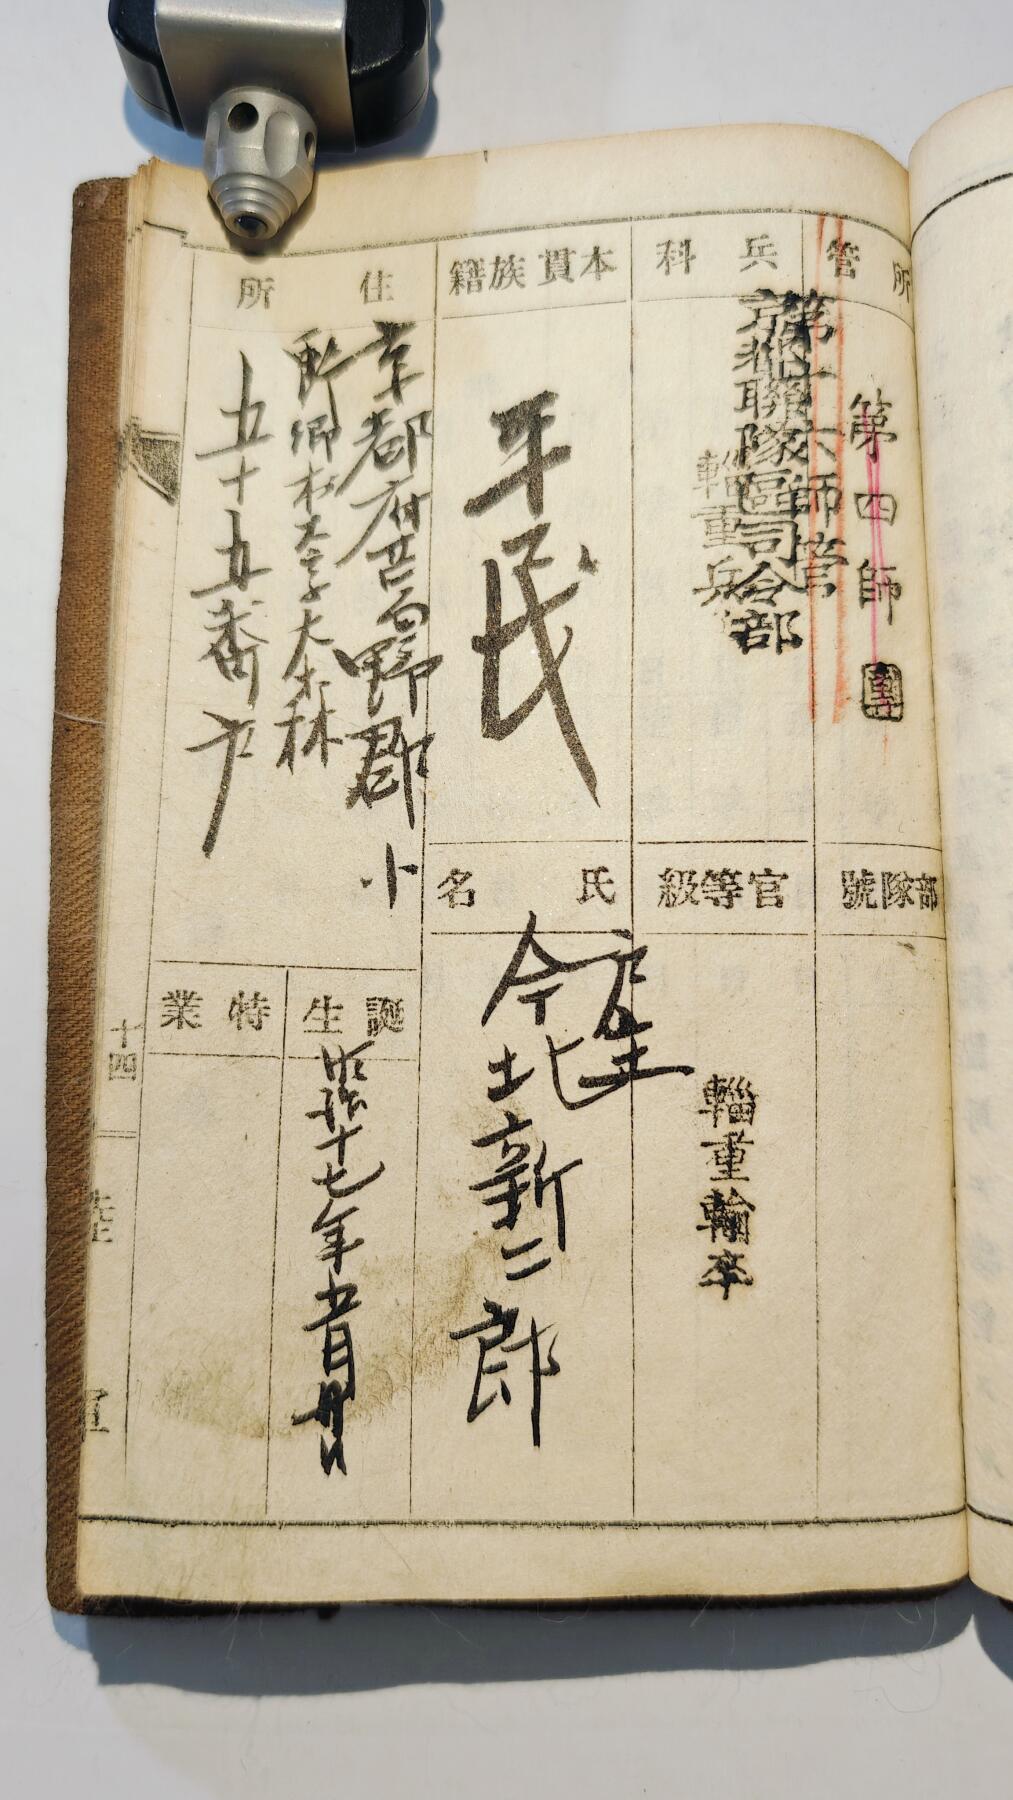 所管
第四師團
第十六師管
京都聯隊區司令部
兵科
輜重兵
部隊號
官等級
輜重輸卒
本貫族籍
平民
氏名
今北新二郎
住所
京都府
野郡
小
野鄉村大字大森
五十五番戶
誕生
明治十七年五月
特業
十四